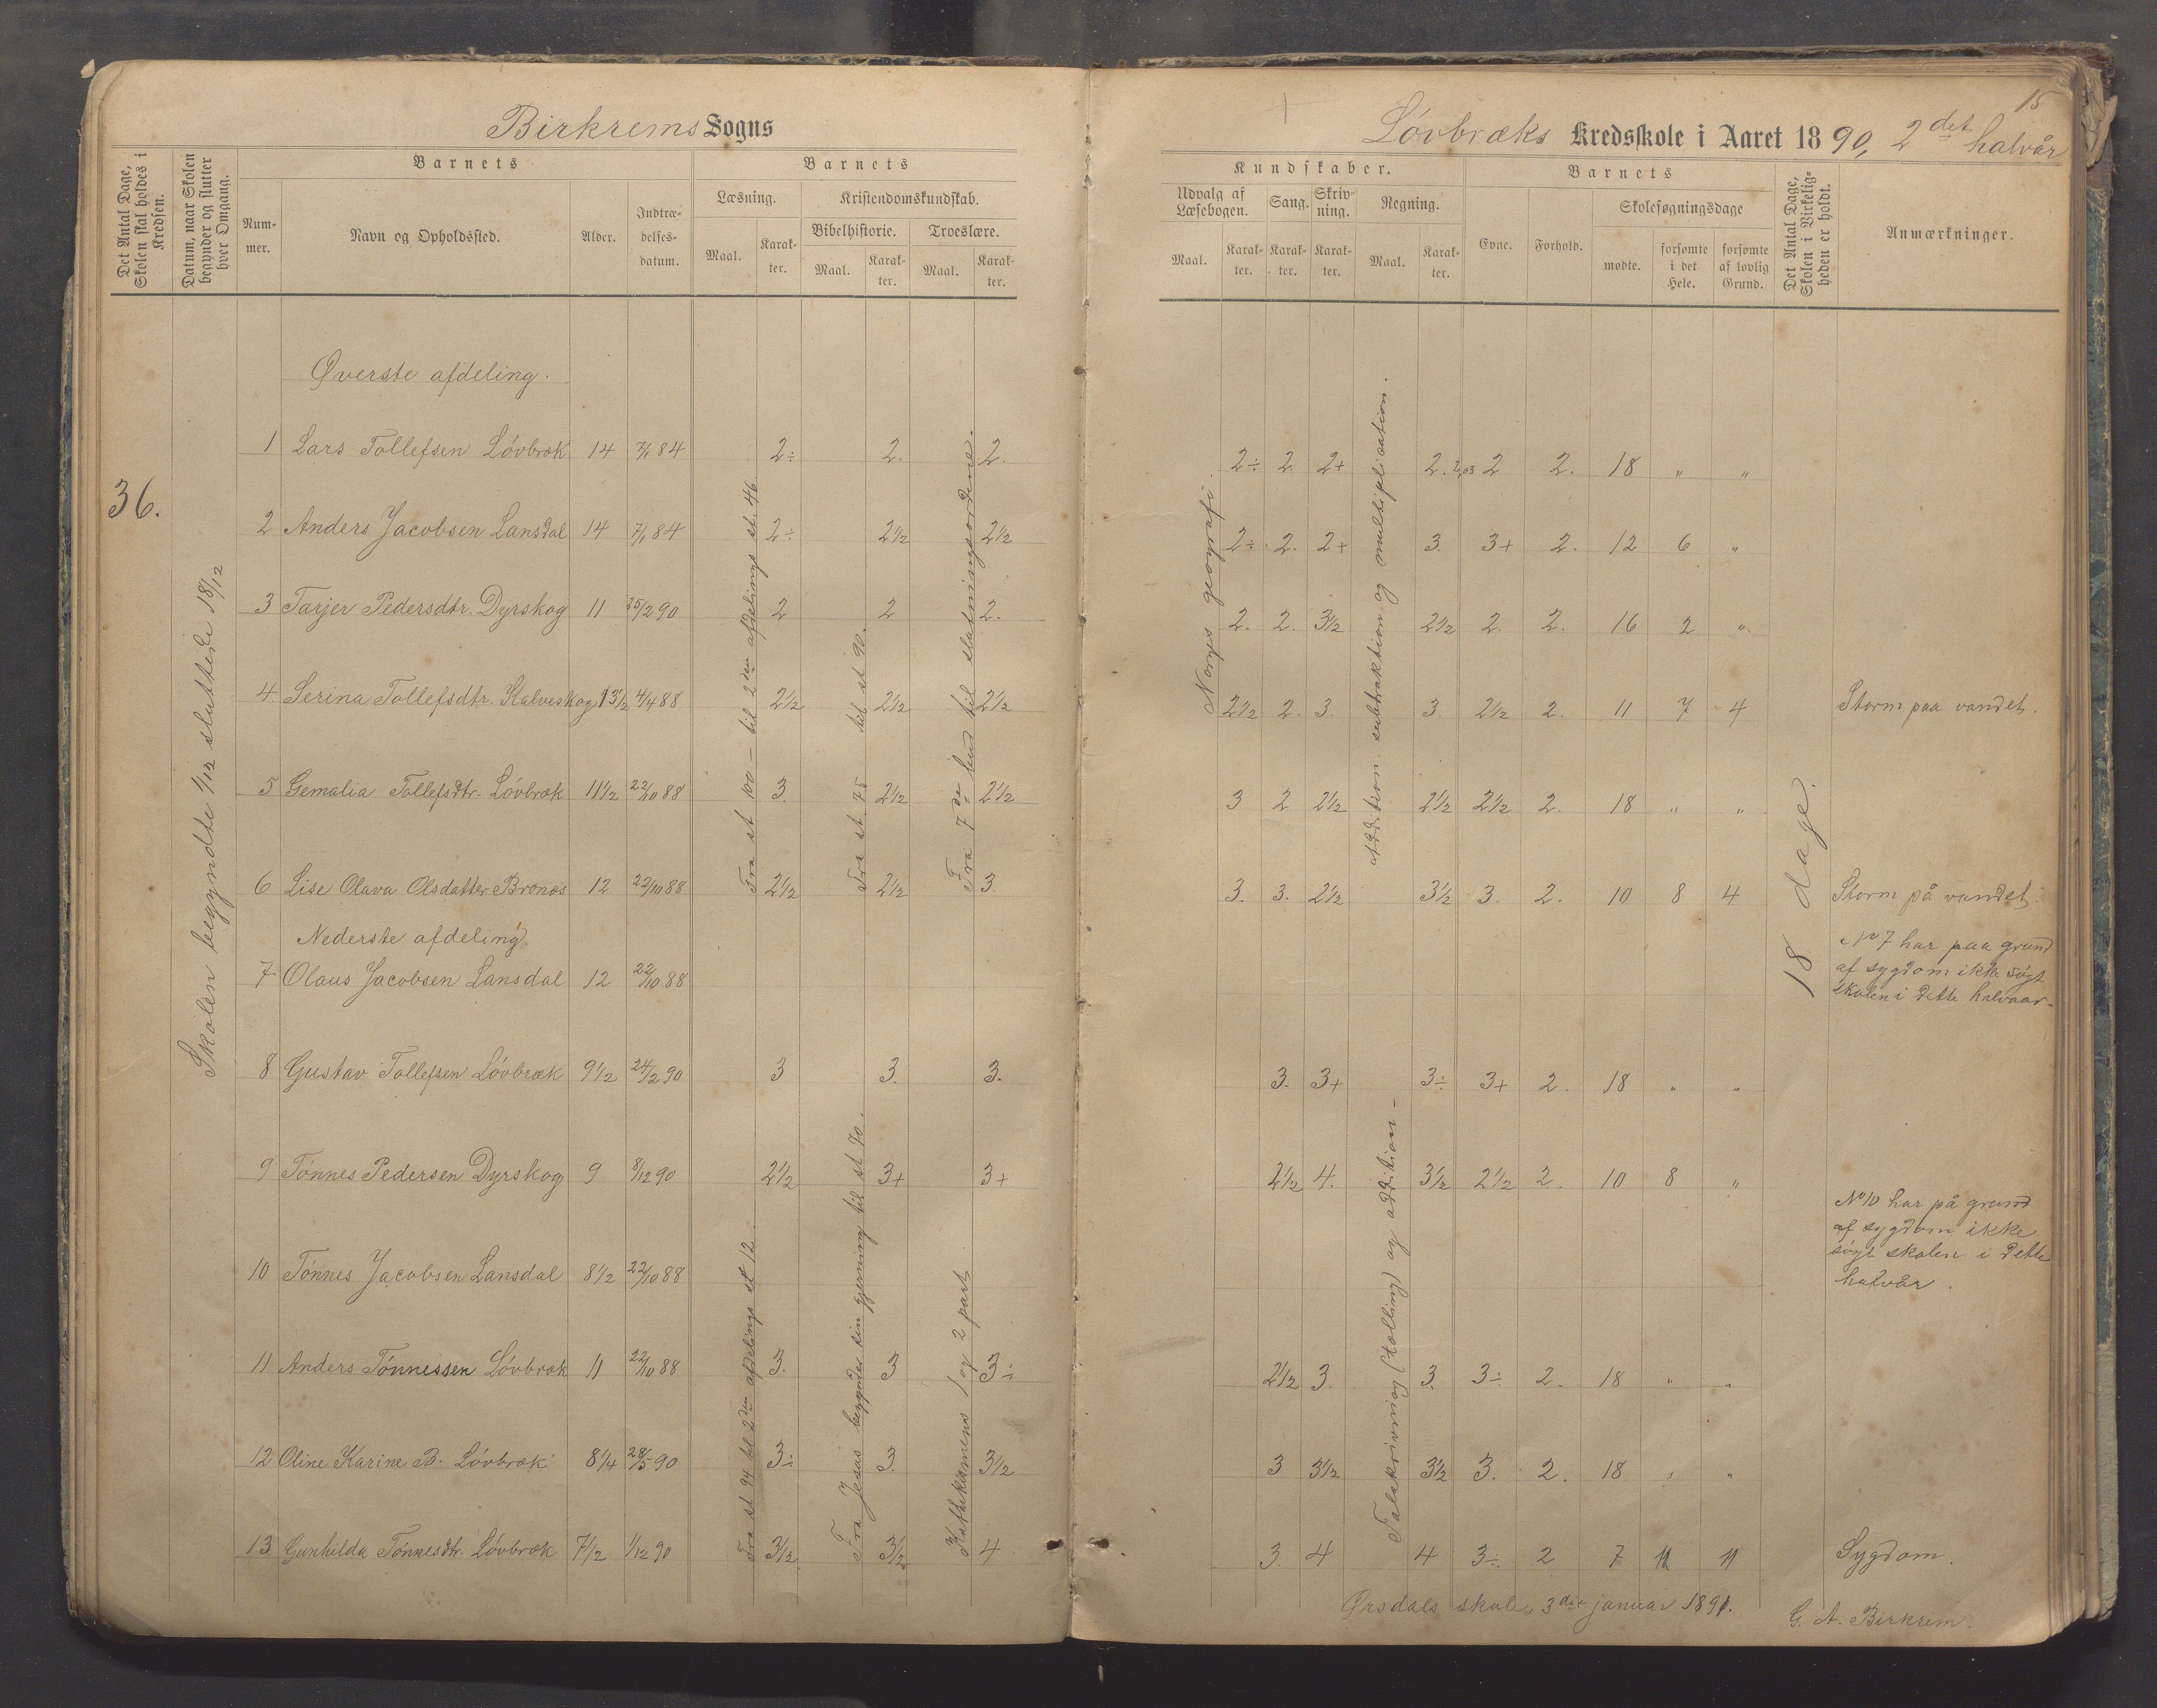 15
Birkrems Sogns
Løvbræks Kredsskole i Aaret 1890, 2det halvår
Det Antal Dage, Skolen skal holdes i Kredsen.
Datum, naar Skolen begynder og slutter hver Omgang.
Barnets
Nummer.
Navn og Opholdssted.
Alder.
Indtrædelsesdatum.
Barnets
Læsning.
Maal.
Karakter.
Kristendomskundskab.
Bibelhistorie.
Maal.
Karakter.
Troeslære.
Maal.
Karakter.
Kundskaber.
Udvalg af Læsebogen.
Maal.
Karakter.
Sang.
Karakter.
Skrivning.
Karakter.
Regning.
Maal.
Karakter.
Barnets
Evne.
Forhold.
Skolesøgningsdage
mødte.
forsømte i det Hele.
forsømte af lovlig Grund.
Det Antal Dage, Skolen i Virkeligheden er holdt.
Anmærkninger.
36.
Skolen begyndte 1/12 sluttede 18/12
Øverste afdeling.
1 Lars Tollefsen Løvbræk 14 7/1 84 2÷ 2. 2. 2÷ 2. 2+ 2. 2,03 2 2. 18 " "
2 Anders Jacobsen Lansdal 14 7/1 84 2÷ 2½ 2½ 2÷ 2. 2+ 3. 3+ 2. 12 6 "
3 Tarjer Pedersdtr. Dyrskog 11 25/2 90 2 2 2. 2. 2. 3½ 2½ 2. 2. 16 2 "
4. Serina Tollefsdtr. Kalveskog 13½ 4/4 88 2½ 2½ 2½ 2½ 2. 3. 3. 2½ 2. 11 7 4 Storm paa vandet.
5 Gemalia Tollefsdtr. Løvbræk 11½ 22/10 88 3. 2½ 2½ 3 2 2½ 2½ 2½ 2. 18 " "
6 Lise Olava Olsdatter Bronæs 12 22/10 88 2½ 2½ 3. 3. 3. 2½ 3½ 3. 2. 10 8 4 Storm på vandet.
Fra st 100 – til 2den afdelings st. 46
Fra st. 75 til st 90.
Fra 7de bud til slutningsordene.
Norges geografi.
Addition. subtraktion og multiplication.
18 dage.
Nederste afdeling
7 Olaus Jacobsen Lansdal 12 22/10 88
No 7 har paa grund
af sygdom ikke søgt
skolen i dette halvaar.
8 Gustav Tollefsen Løvbræk 9½ 24/2 90 3 3. 3. 3. 3+ 3÷ 3+ 2. 18 " "
9 Tønnes Pedersen Dyrskog 9 8/12 90 2½ 3+ 3+ 2½ 4. 3½ 2½ 2. 10 8 "
10 Tønnes Jacobsen Lansdal 8½ 22/10 88
No 10 har på grund
af sygdom ikke
søgt skolen i dette
halvår.
11 Anders Tønnessen Løvbræk 11 22/10 88 3. 3 3÷ 2½ 3. 3. 3÷ 2. 18 " "
12 Oline Karine B. Løvbræk 8¼ 28/5 90 3÷ 3. 3½ 3 3½ 3½ 3. 2. 18 " "
13 Gunhilda Tønnesdtr. Løvbræk 7½ 1/12 90 3½ 3½ 4 3. 4 4 3÷ 2 7 11 11 Sygdom.
Fra st 94 til 2den afdelings st 12
Fra Jesus begynder sin gjerning til st 70.
Kathekismens 1 og 2 part
Talskrivning (tælling) og addition –
Ørsdals skole, 3die januar 1891.
G. A. Birkrem.